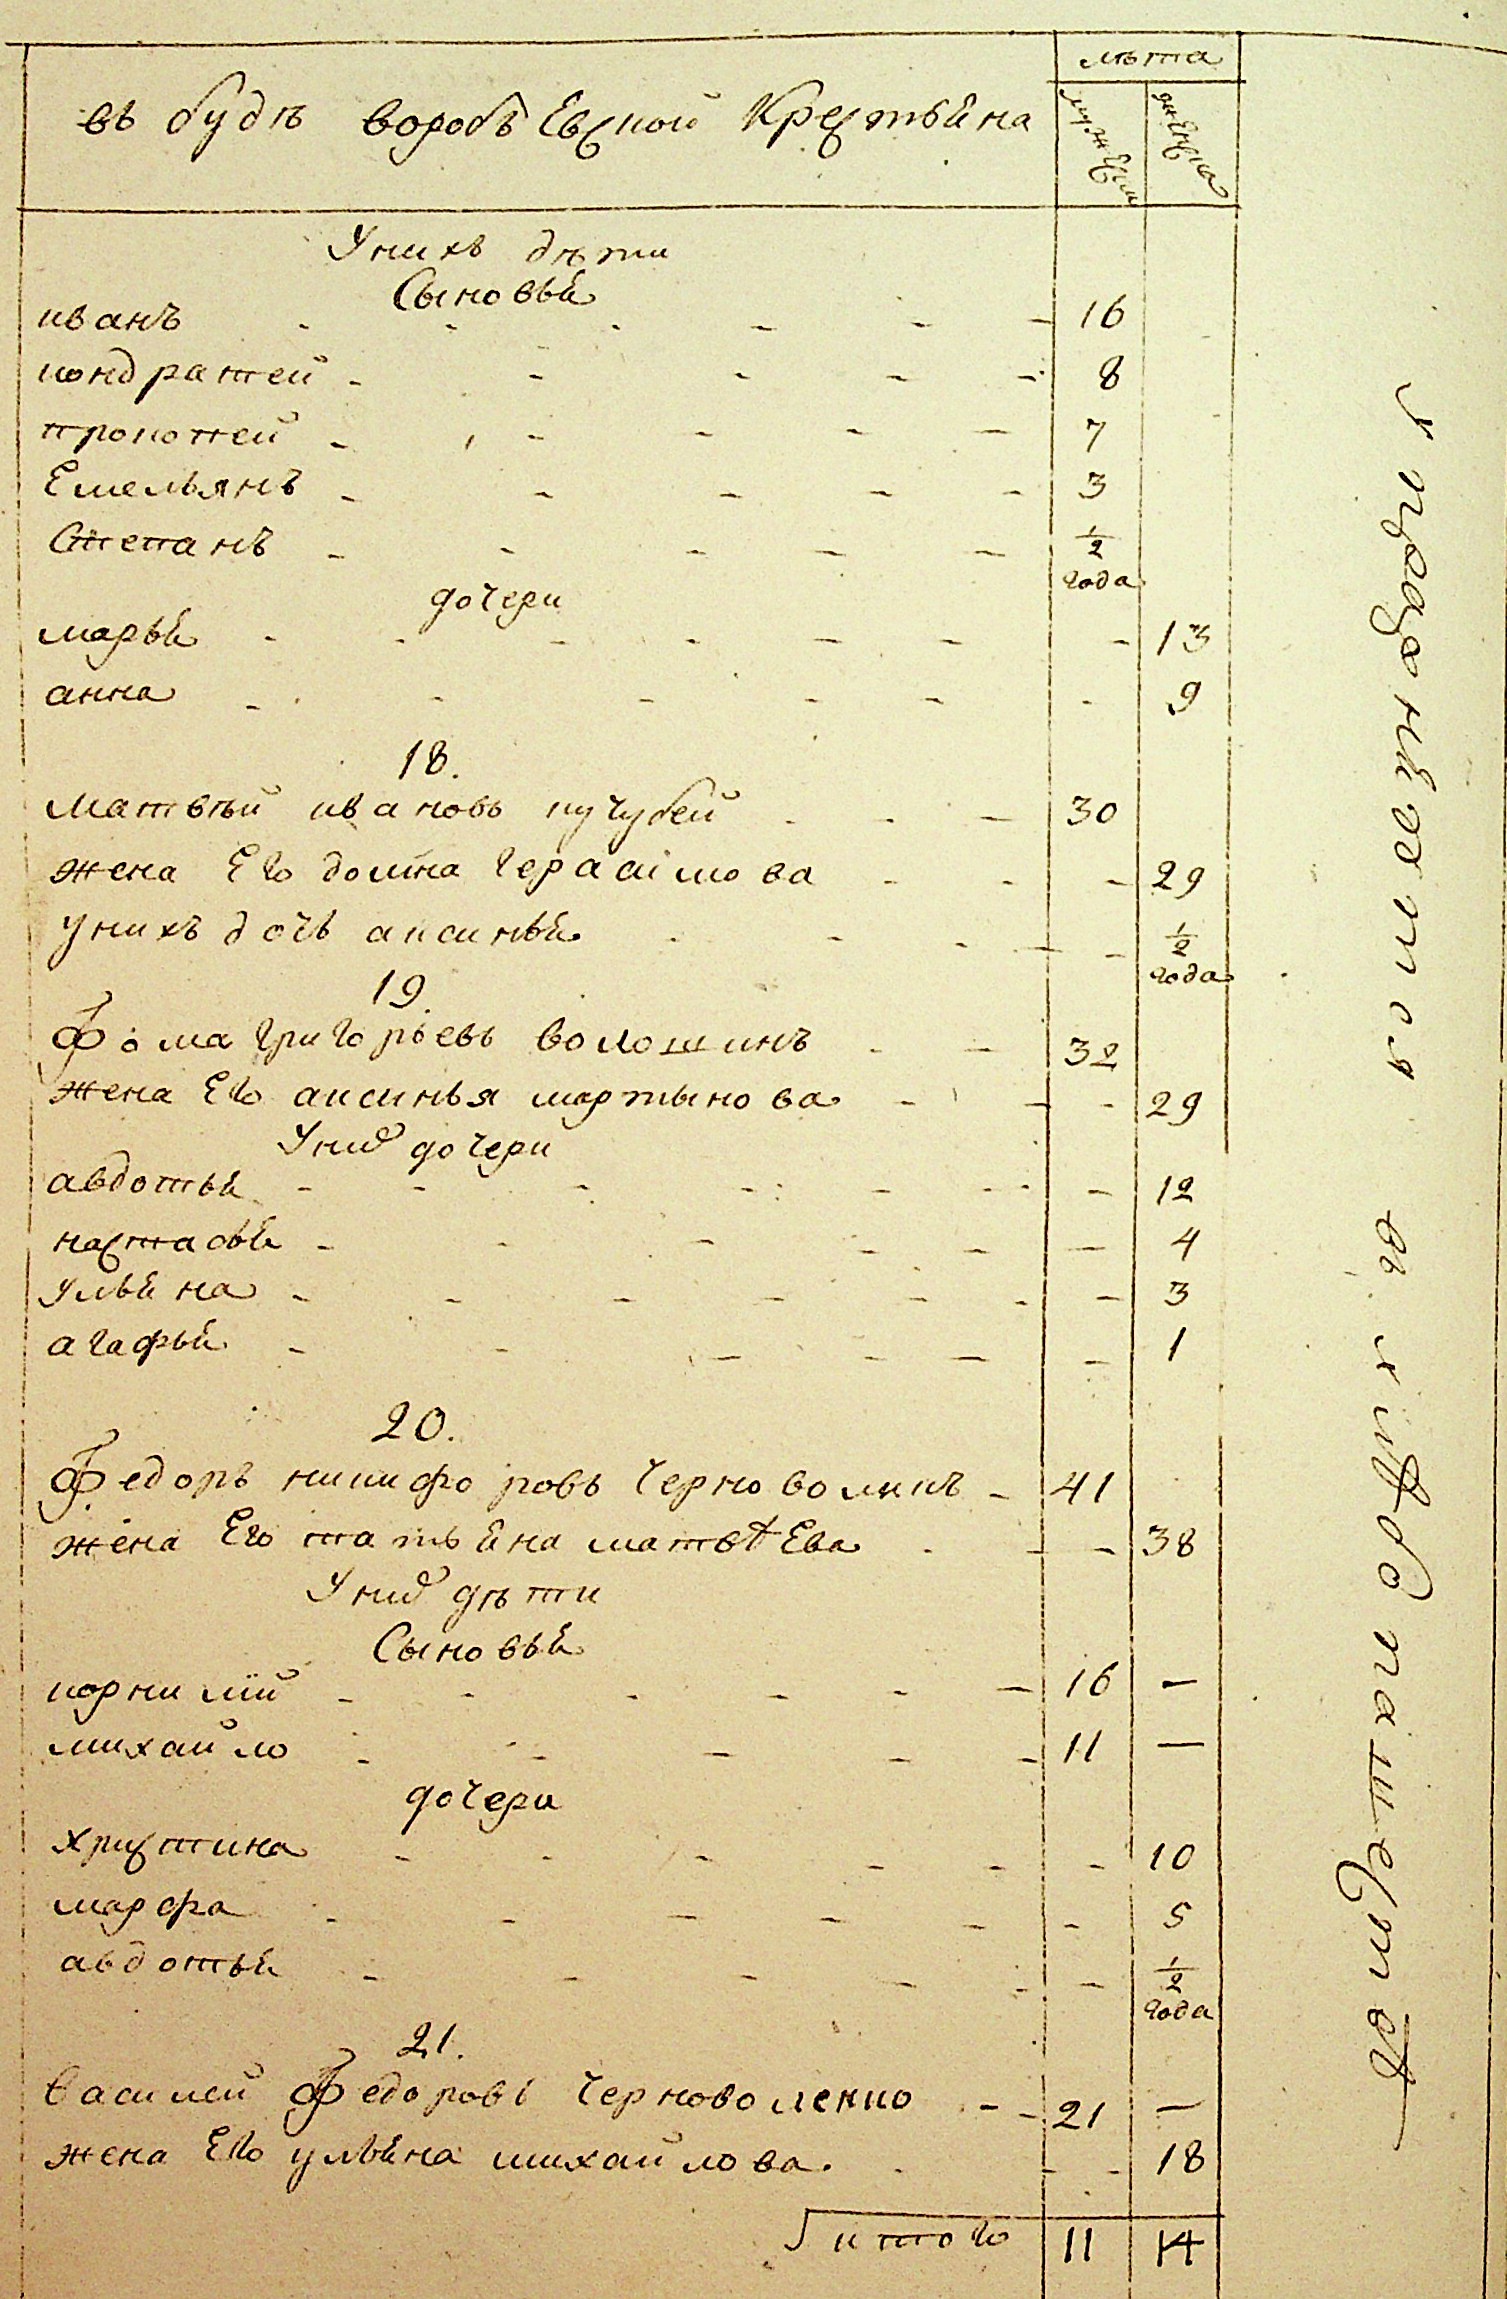 въ будѣ воробъЕвской Крестьяна
лѣта
мужеска
женска
У нихъ дѣти
Сыновья
иванъ 16
кондратей 8
прокопей 7
Емельянъ 3
Степанъ 1/2 года
дочери
марья 13
анна 9
18.
матвѣй ивановъ кучубей 30
жена Его домна герасимова 29
у нихъ дочь аксинья 1/2 года
19.
Фома григорьевъ волошинъ 32
жена Его аксинья мартынова 29
У них дочери
авдотья 12
настасья 4
ульяна 3
агафья 1
20.
Федоръ никифоровъ черноволикъ 41
жена Его татьяна матвѣЕва 38
У них дѣти
Сыновья
корнилий 16 —
михайло 11 —
дочери
христина 10
марфа 5
авдотья 1/2 года
21.
василей Федоровъ черноволенко 21 —
жена Его ульяна михайлова. 18
итого 11 14